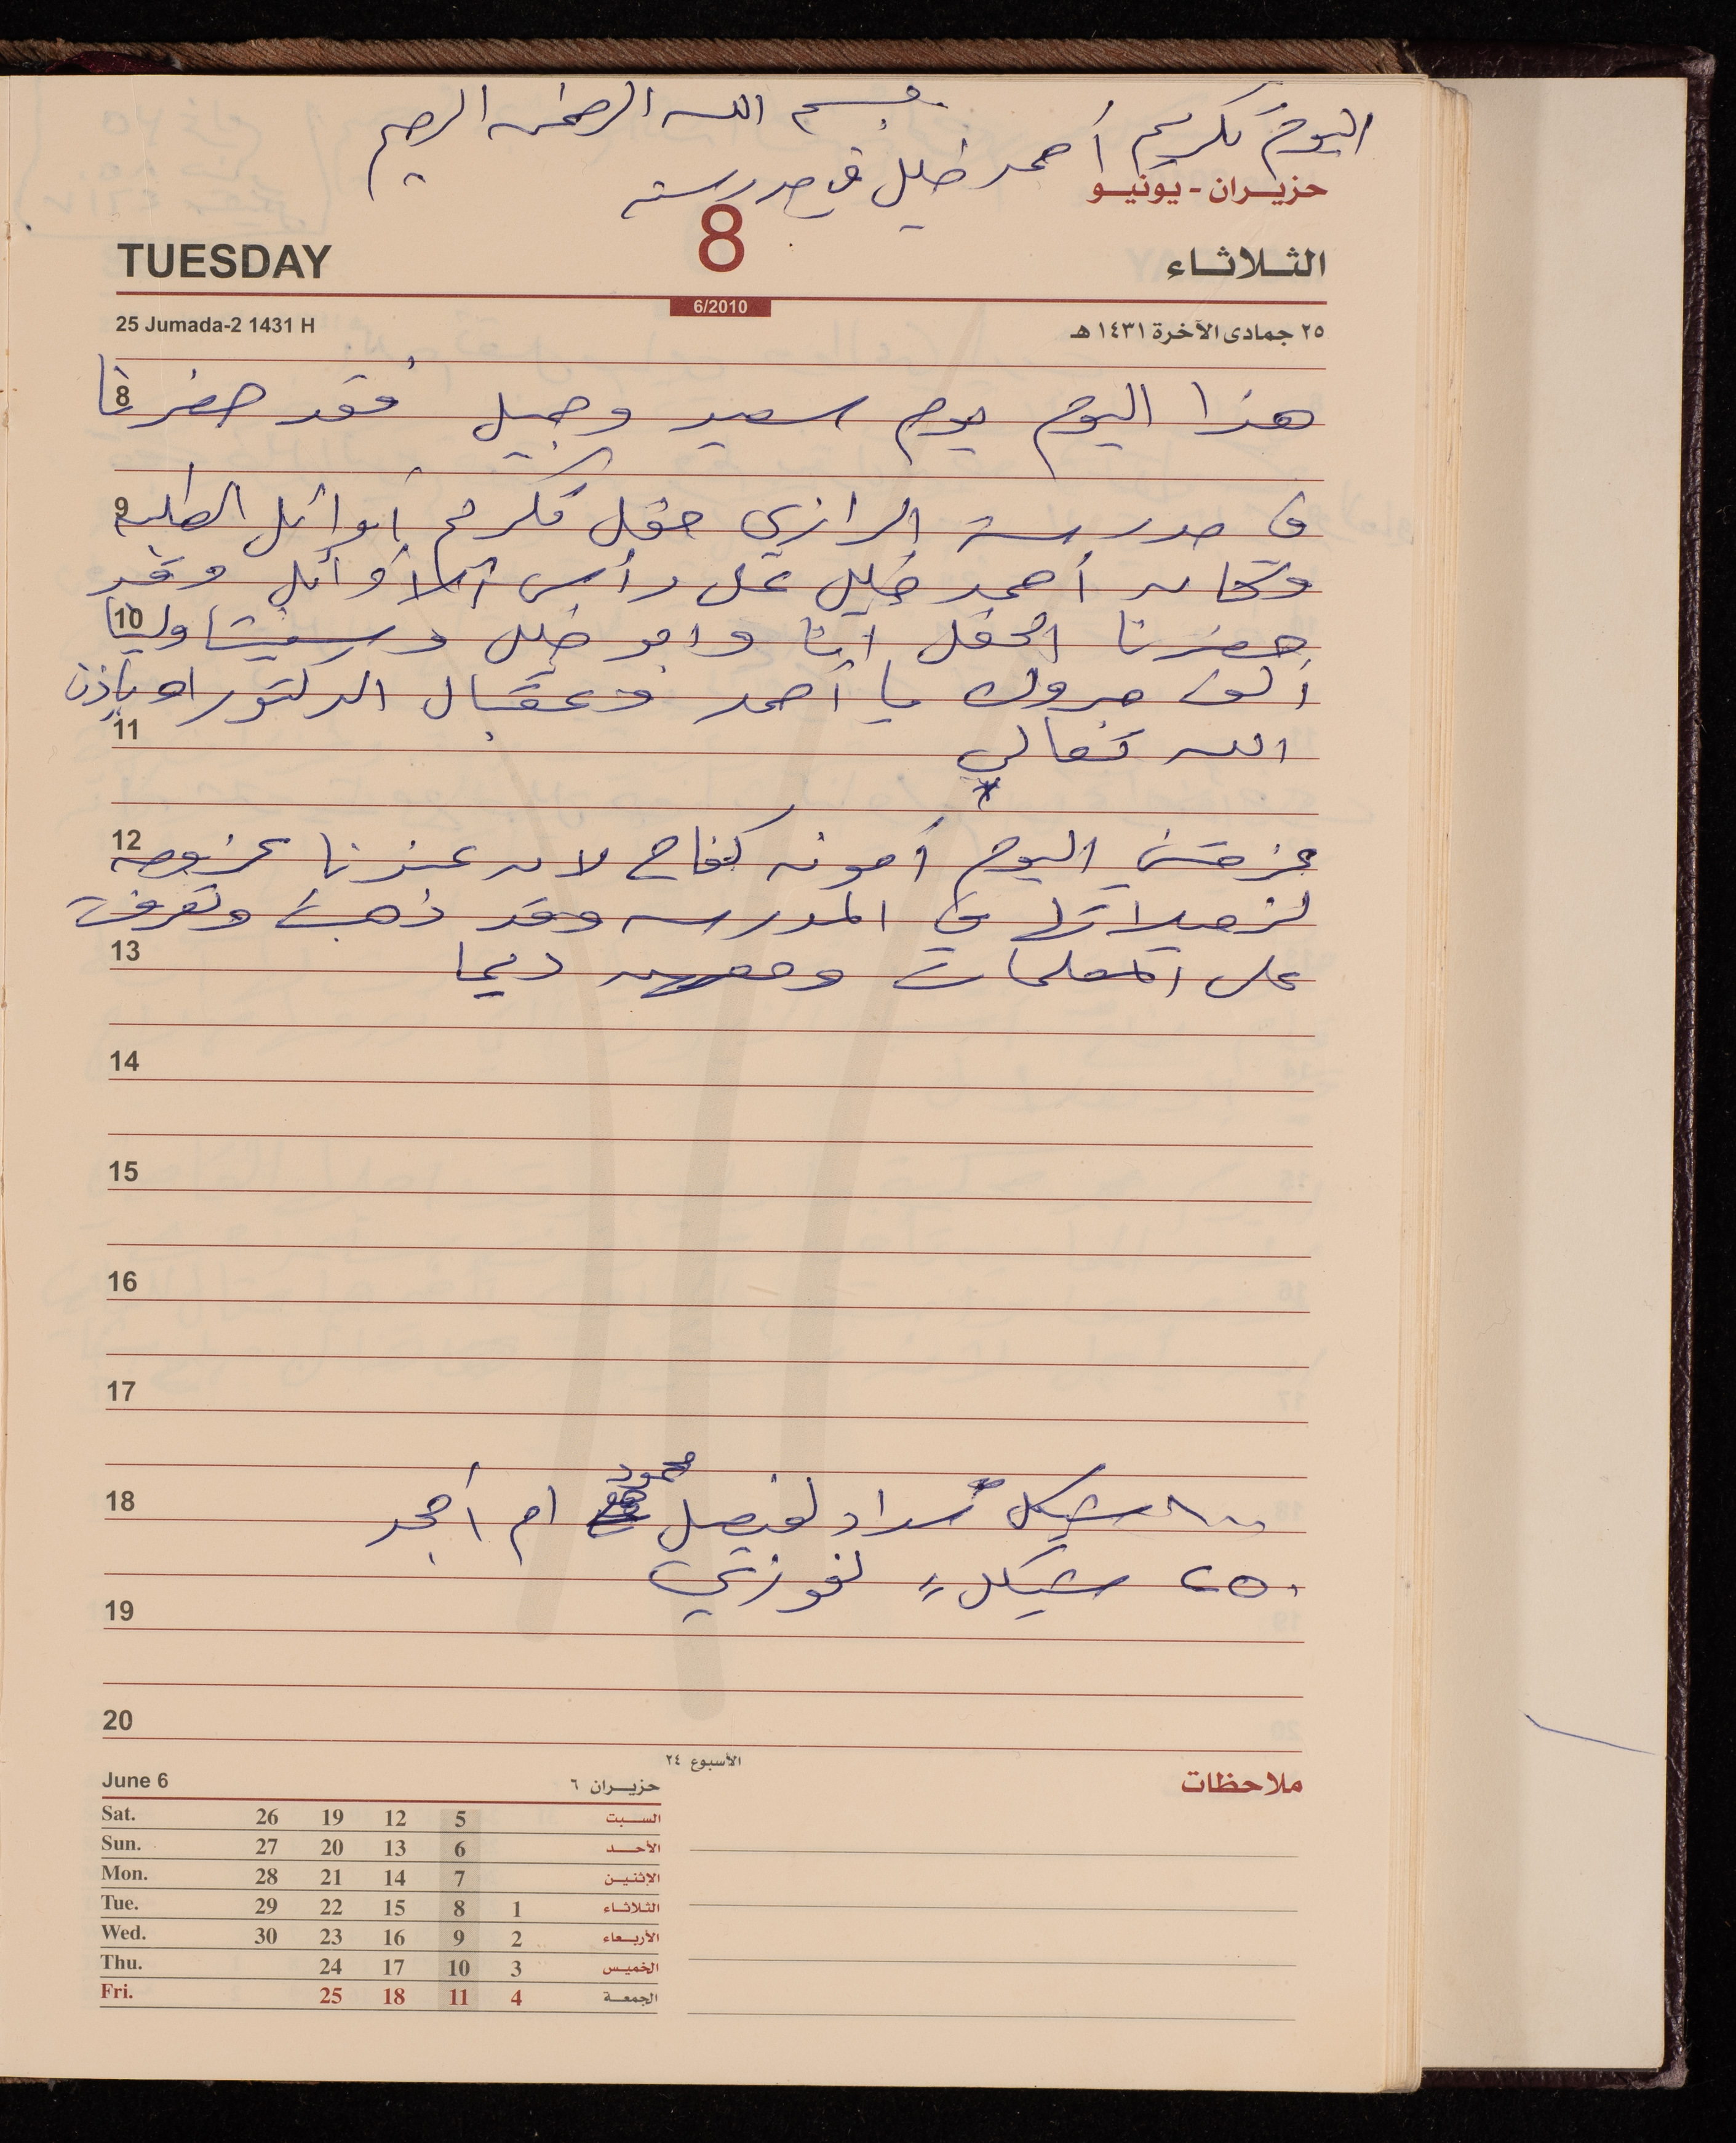 بسم الله الرحمن الرحيم
اليوم تكريم أحمد خليل في مدرسته
حزيـران - يونيـو
TUESDAY 8 الثـلاثـاء
6/2010
25 Jumada-2 1431 H ٢٥ جمادى الآخرة ١٤٣١ هـ
8 هذا اليوم يوم سعيد وجميل فقد حضرنا
9 في مدرسة الرازي حفل تكريم أوائل الطلبه
وكان أحمد خليل على رأس الأوائل وقد
10 حضرنا الحفل انا وابو خليل
ألف مبروك يا أحمد وعقبال الدكتوراه بإذن
11 الله تعالى
12 عزمتني اليوم أمونه كفاح لان عندنا عزومه
لزميلاتها في المدرسه وقد ذهبت وتعرفت
13 على المعلمات ومعهن ديما
14
15
16
17
محمود
18 شيكل سداد لفيصل ام أمجد
٢٥٠ شيكل لفوزي
19
20
الأسبوع ٢٤
ملاحظات
June 6 حزيـران ٦
Sat. 26 19 12 5 السـبت
Sun. 27 20 13 6 الأحـد
Mon. 28 21 14 7 الإثنيـن
Tue. 29 22 15 8 1 الثلاثـاء
Wed. 30 23 16 9 2 الأربـعاء
Thu. 24 17 10 3 الخميـس
Fri. 25 18 11 4 الجمعـة